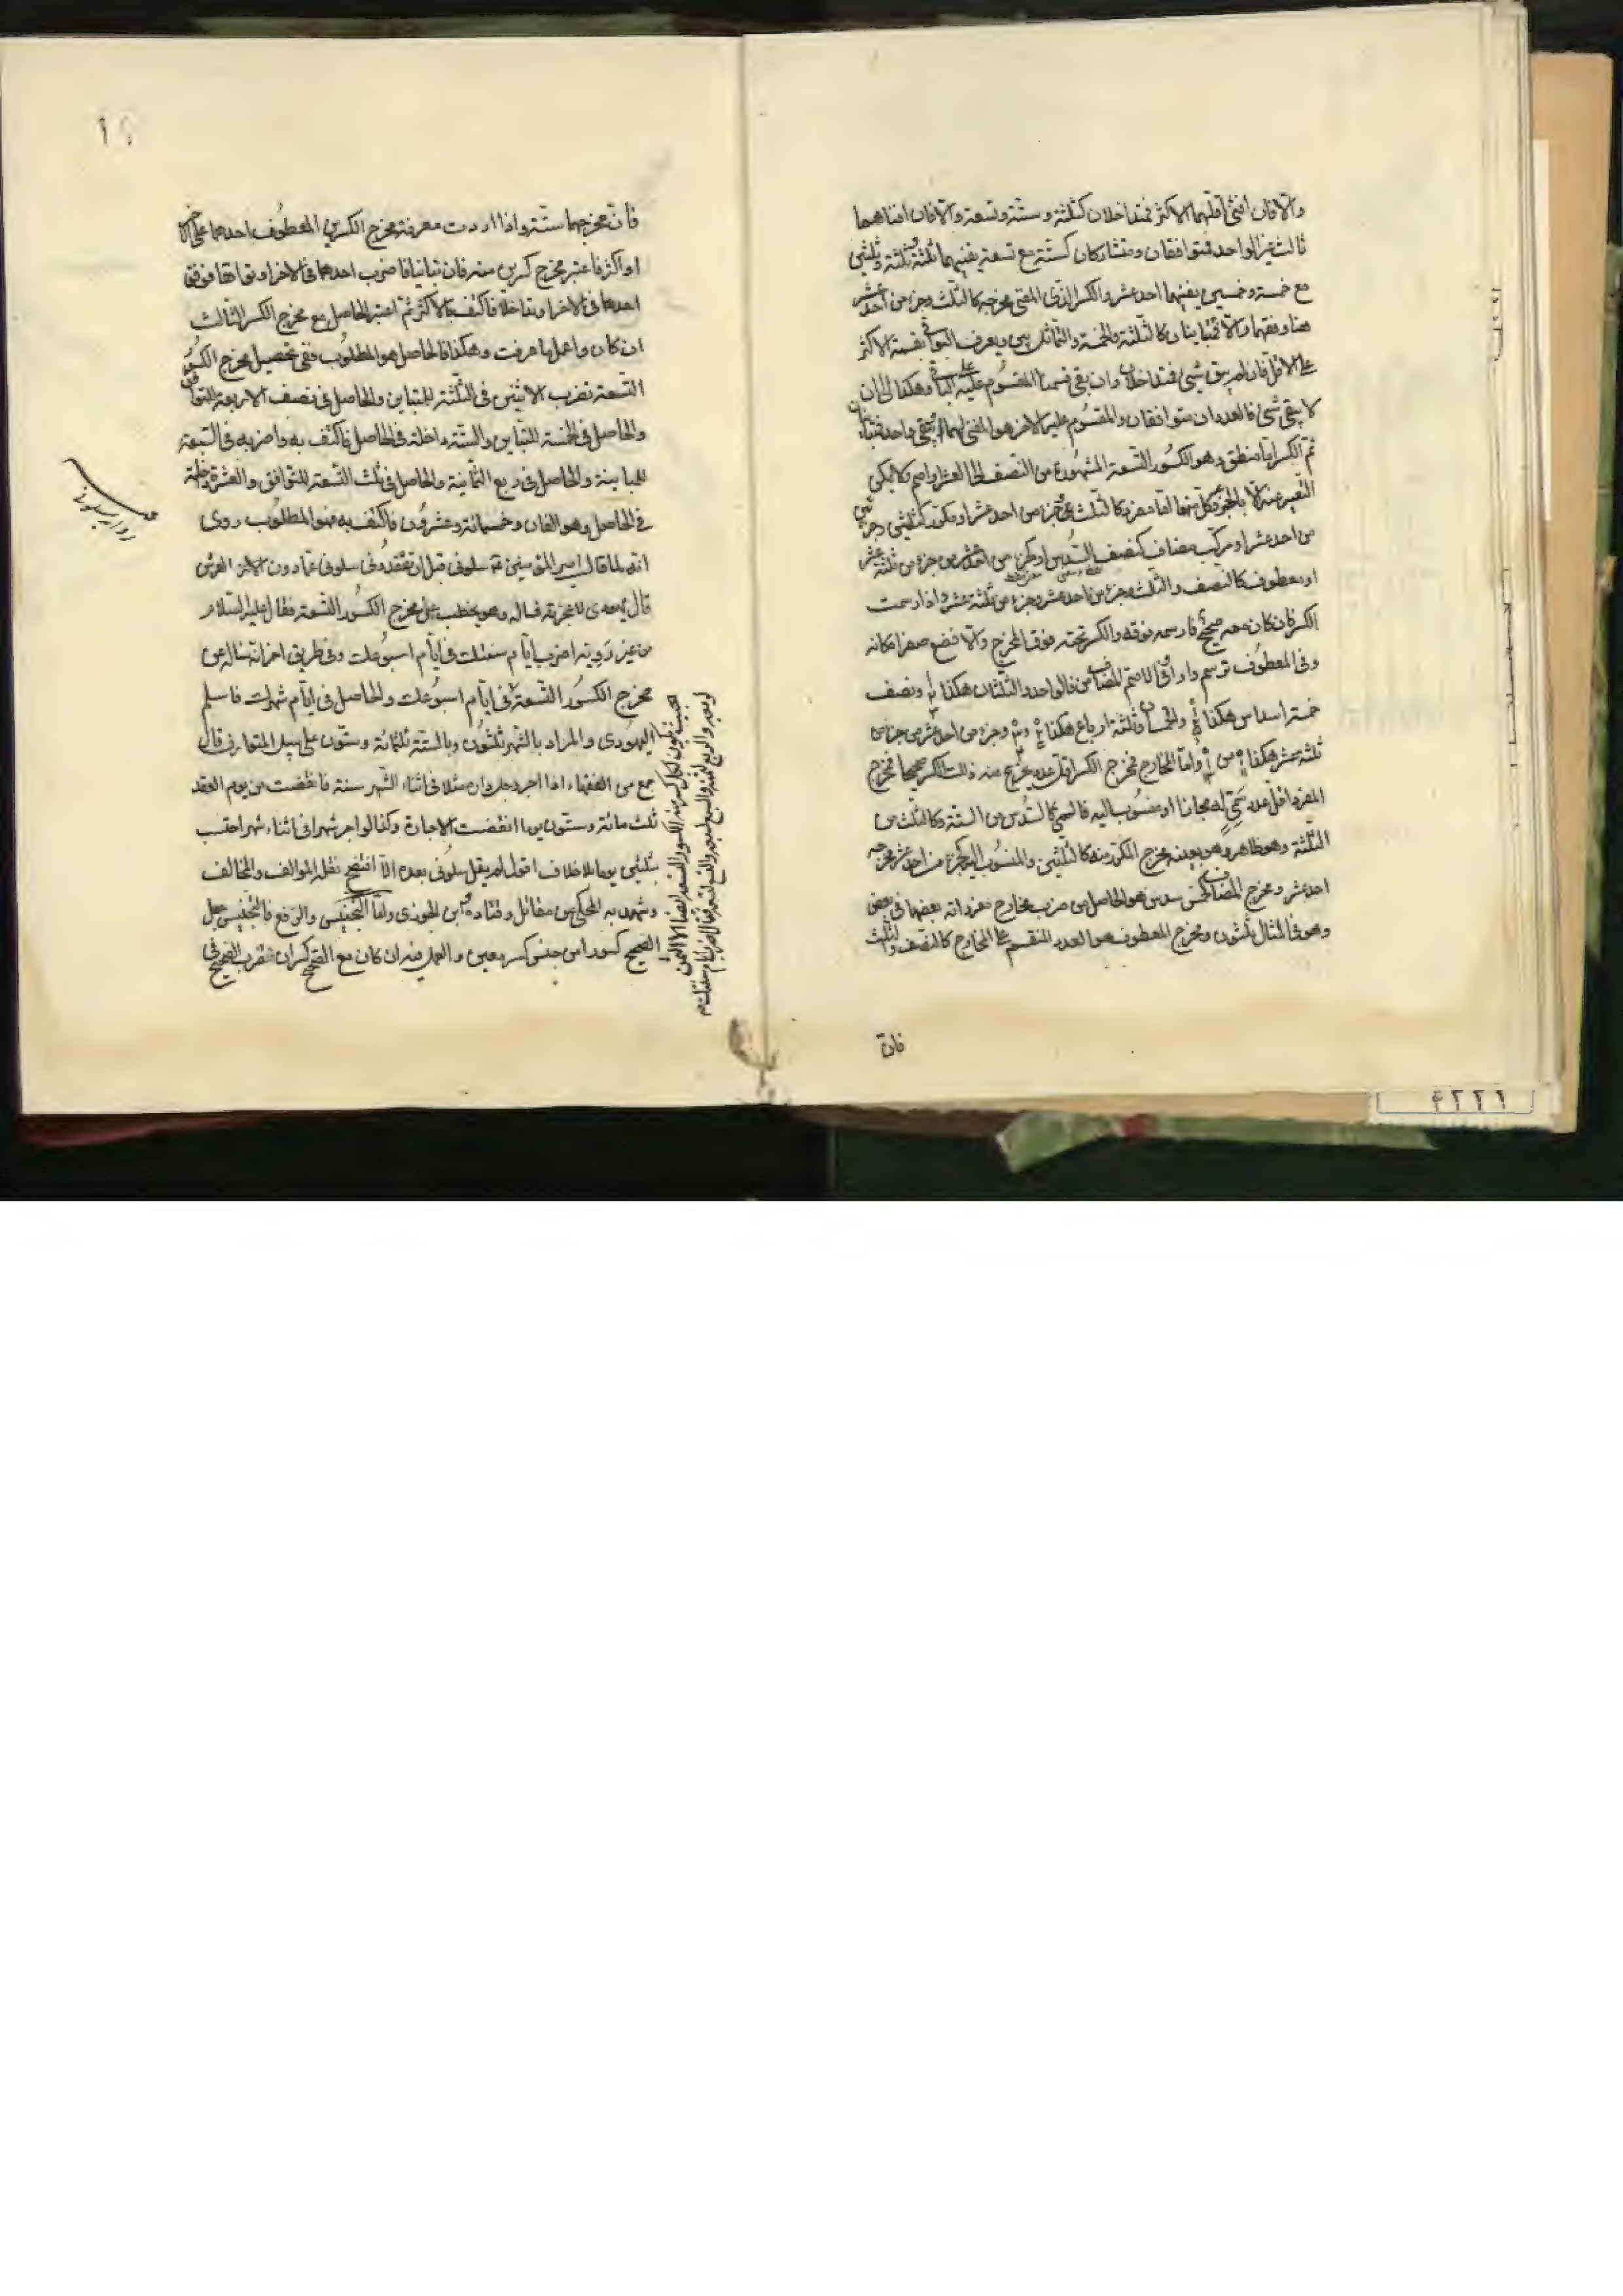 والا فان افنى اقلهما الاكثر فمتداخلان كثلثة وستة وتسعة والا فان افناهما
ثالث غير الواحد فمتوافقان ومتشاركان كستة مع تسعة يفنيهما ثلثة وثلثين
مع خمسة وخمسين يفنيهما احد عشر والكسر الذى المفنى مخرجه كالثلث وجزء من احد عشر
هنا وفقهما والا فمتباينان كالثلثة والخمسة والتماثل بين ويعرف البواقى بقسمة الاكثر
على الاقل فان لم يبق شئ فمتداخلان وان بقى قسمنا المقسوم عليه على الباقى وهكذا الى ان
لا يبقى شئ فالعددان متوافقان والمقسوم عليه الاخر هو المفنى لهما او يبقى واحد فمتباينان
ثم الكسر اما منطق وهو الكسور التسعة المشهورة من النصف الى العشر او اصم ولا يمكن
التعبير عنه الا بالجزء وكل منهما اما مفرد كالثلث وجزء من احد عشر او مكرر كثلثين وجزئين
من احد عشر او مركب مضاف كنصف السدس او كجزء من احد عشر من جزء من ثلثة عشر
او معطوف كالنصف والثلث وجزء من احد عشر وجزء من ثلثة عشر واذا رسمت
الكسر فان كان معه صحيح فارسمه فوقه والكسر تحته فوق المخرج والا فضع صفرا مكانه
وفى المعطوف ترسم واوا وفى الاصم المضاف من فالواحد والثلثان هكذا ونصف
خمسة اسداس هكذا والخمسان وثلثة ارباع هكذا وجزء من احد عشر من جزء من
ثلثة عشر هكذا من واما المخارج فمخرج الكسر اقل عدد يخرج منه ذلك الكسر صحيحا فمخرج
المفرد اقل عدد سمى له مجانا او منسوب اليه فالسمى كالسدس من الستة وكالثلث من
الثلثة وهو ظاهر وهو بعينه مخرج المكرر منه كالثلثين والمنسوب اليه كجزء من احد عشر مخرجه
احد عشر ومخرج المضاف كخمس سدس هو الحاصل من ضرب مخارج مفرداته بعضها فى بعض
وهو فى المثال ثلثون ومخرج المعطوف هو العدد المنقسم على المخارج كالنصف والثلث
فان
فان مخرجهما ستة واذا اردت معرفة مخرج الكسرين المعطوف احدهما على الاخر
او اكثر فاعتبر مخرج كسرين منه فان تباينا فاضرب احدهما فى الاخر او توافقا فوفق
احدهما فى الاخر او تداخلا فاكتف بالاكثر ثم اعتبر الحاصل مع مخرج الكسر الثالث
ان كان واعمل بما عرفت وهكذا فالحاصل هو المطلوب ففى تحصيل مخرج الكسور
التسعة تضرب الاثنين فى الثلثة للتباين والحاصل فى نصف الاربعة للتوافق
والحاصل فى الخمسة للتباين والستة داخلة فى الحاصل فاكتف به واضربه فى السبعة
للمباينة والحاصل فى ربع الثمانية والحاصل فى ثلث التسعة للتوافق والعشرة داخلة
فى الحاصل وهو الفان وخمسمائة وعشرون فاكتف به فهو المطلوب روى
انه لما قال امير المؤمنين سلونى قبل ان تفقدونى سلونى عما دون العرش
قال يهودى لاعجزنه فساله وهو يخطب عن مخرج الكسور التسعة فقال عليه السلام
من غير روية اضرب ايام سنتك فى ايام اسبوعك وفى طريق اخر انه ساله عن
مخرج الكسور التسعة فى ايام اسبوعك والحاصل فى ايام شهرك فاسلم
اليهودى والمراد بالشهر ثلثون وبالستة ثلثمائة وستون على سبيل المتعارف قال
جمع من الفقهاء اذا اجر رجل داره مثلا فى اثناء الشهر سنة فانقضت من يوم العقد
ثلث مائة وستون يوما انقضت الاجارة وكذا لو اجر شهرا فى اثناء شهر احتسب
بثلثين يوما بلا خلاف اقول لم يقل سلونى بعده الا افتضح نقله الموالف والمخالف
وشهد به المحكى من مقاتل وقتادة وابن الجوزى واما التجنيس والرفع فالتجنيس جعل
الصحيح كسورا من جنس كسر معين والعمل فيه ان كان مع الصحيح كسر ان تضرب الصحيح فى
٤٢٢١